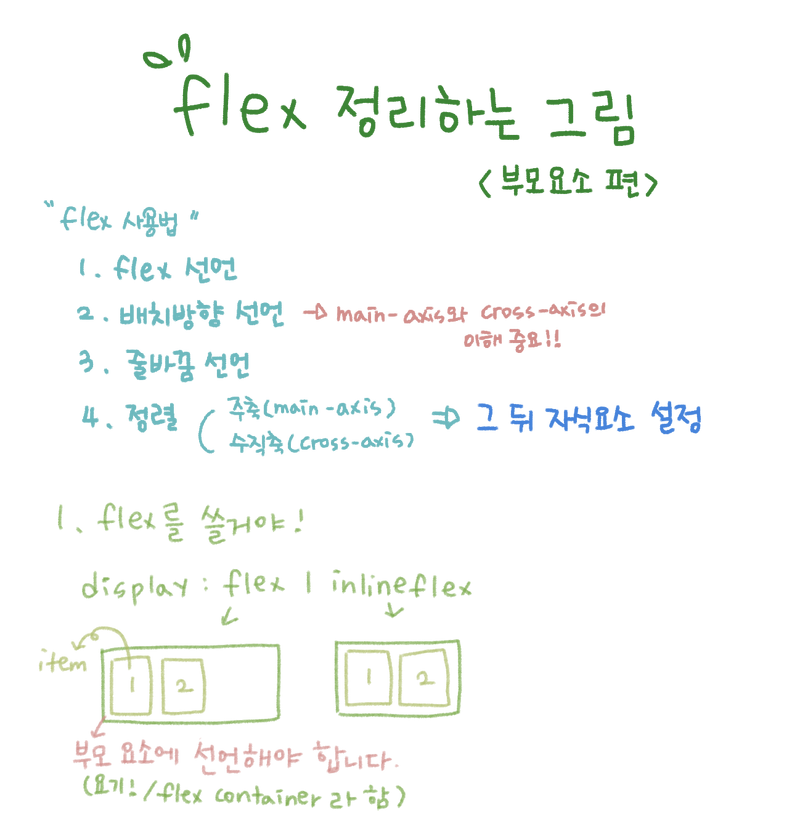 flex 정리하는 그림
<부모요소 편>
"flex 사용법"
1. flex 선언
2. 배치방향 선언 → main-axis와 cross-axis의
이해 중요!!
3. 줄바꿈 선언
4. 정렬 ( 주축(main-axis) ⇒ 그 뒤 자식요소 설정
수직축(cross-axis)
1. flex를 쓸거야!
display : flex | inlineflex
item
1 2 1 2
부모 요소에 선언해야 합니다.
(요기! /flex container 라 함)